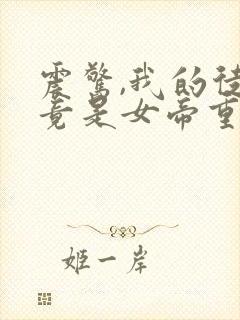 震惊,我的徒
竟是女帝重
姬一岸